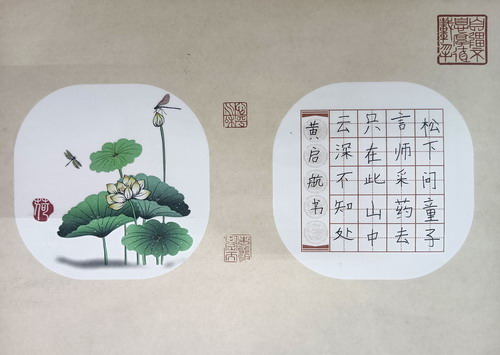 松下问童子
言师采药去
只在此山中
云深不知处
黄启航书
荷